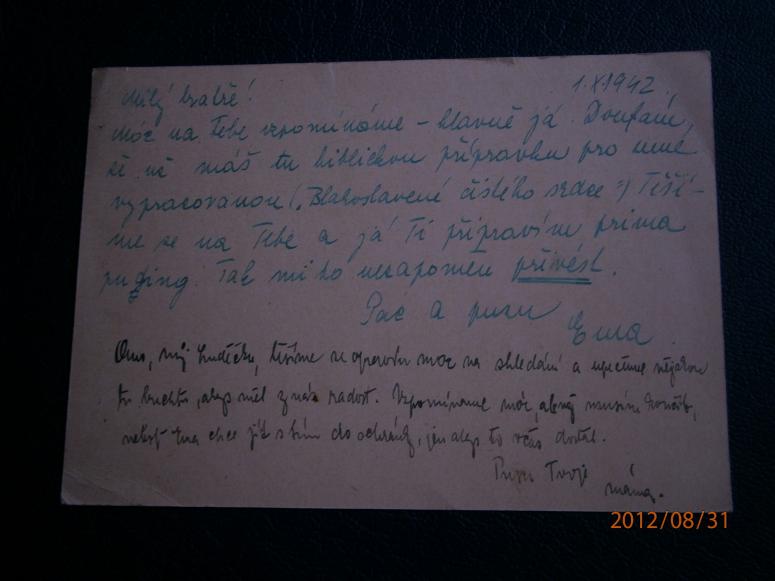 1.X.1942.
Milý bratře!
Moc na Tebe vzpomínáme – hlavně já. Doufám,
že už máš tu biblickou přípravku pro mne
vypracovanou („Blahoslavené čistého srdce“) Těší-
me se na Tebe a já Ti připravím prima
puding. Tak mi ho nezapomeň přivést.
Pac a pusu
Ema
můj Ludíčku, těšíme se opravdu moc na shledání a upečeme nějakou
tu buchtu, abys měl z nás radost. Vzpomínáme moc, musím končit,
neboť Ema chce již s tím do schránky, jen abys to včas dostal.
Pusu Tvoje
máma.
2012/08/31